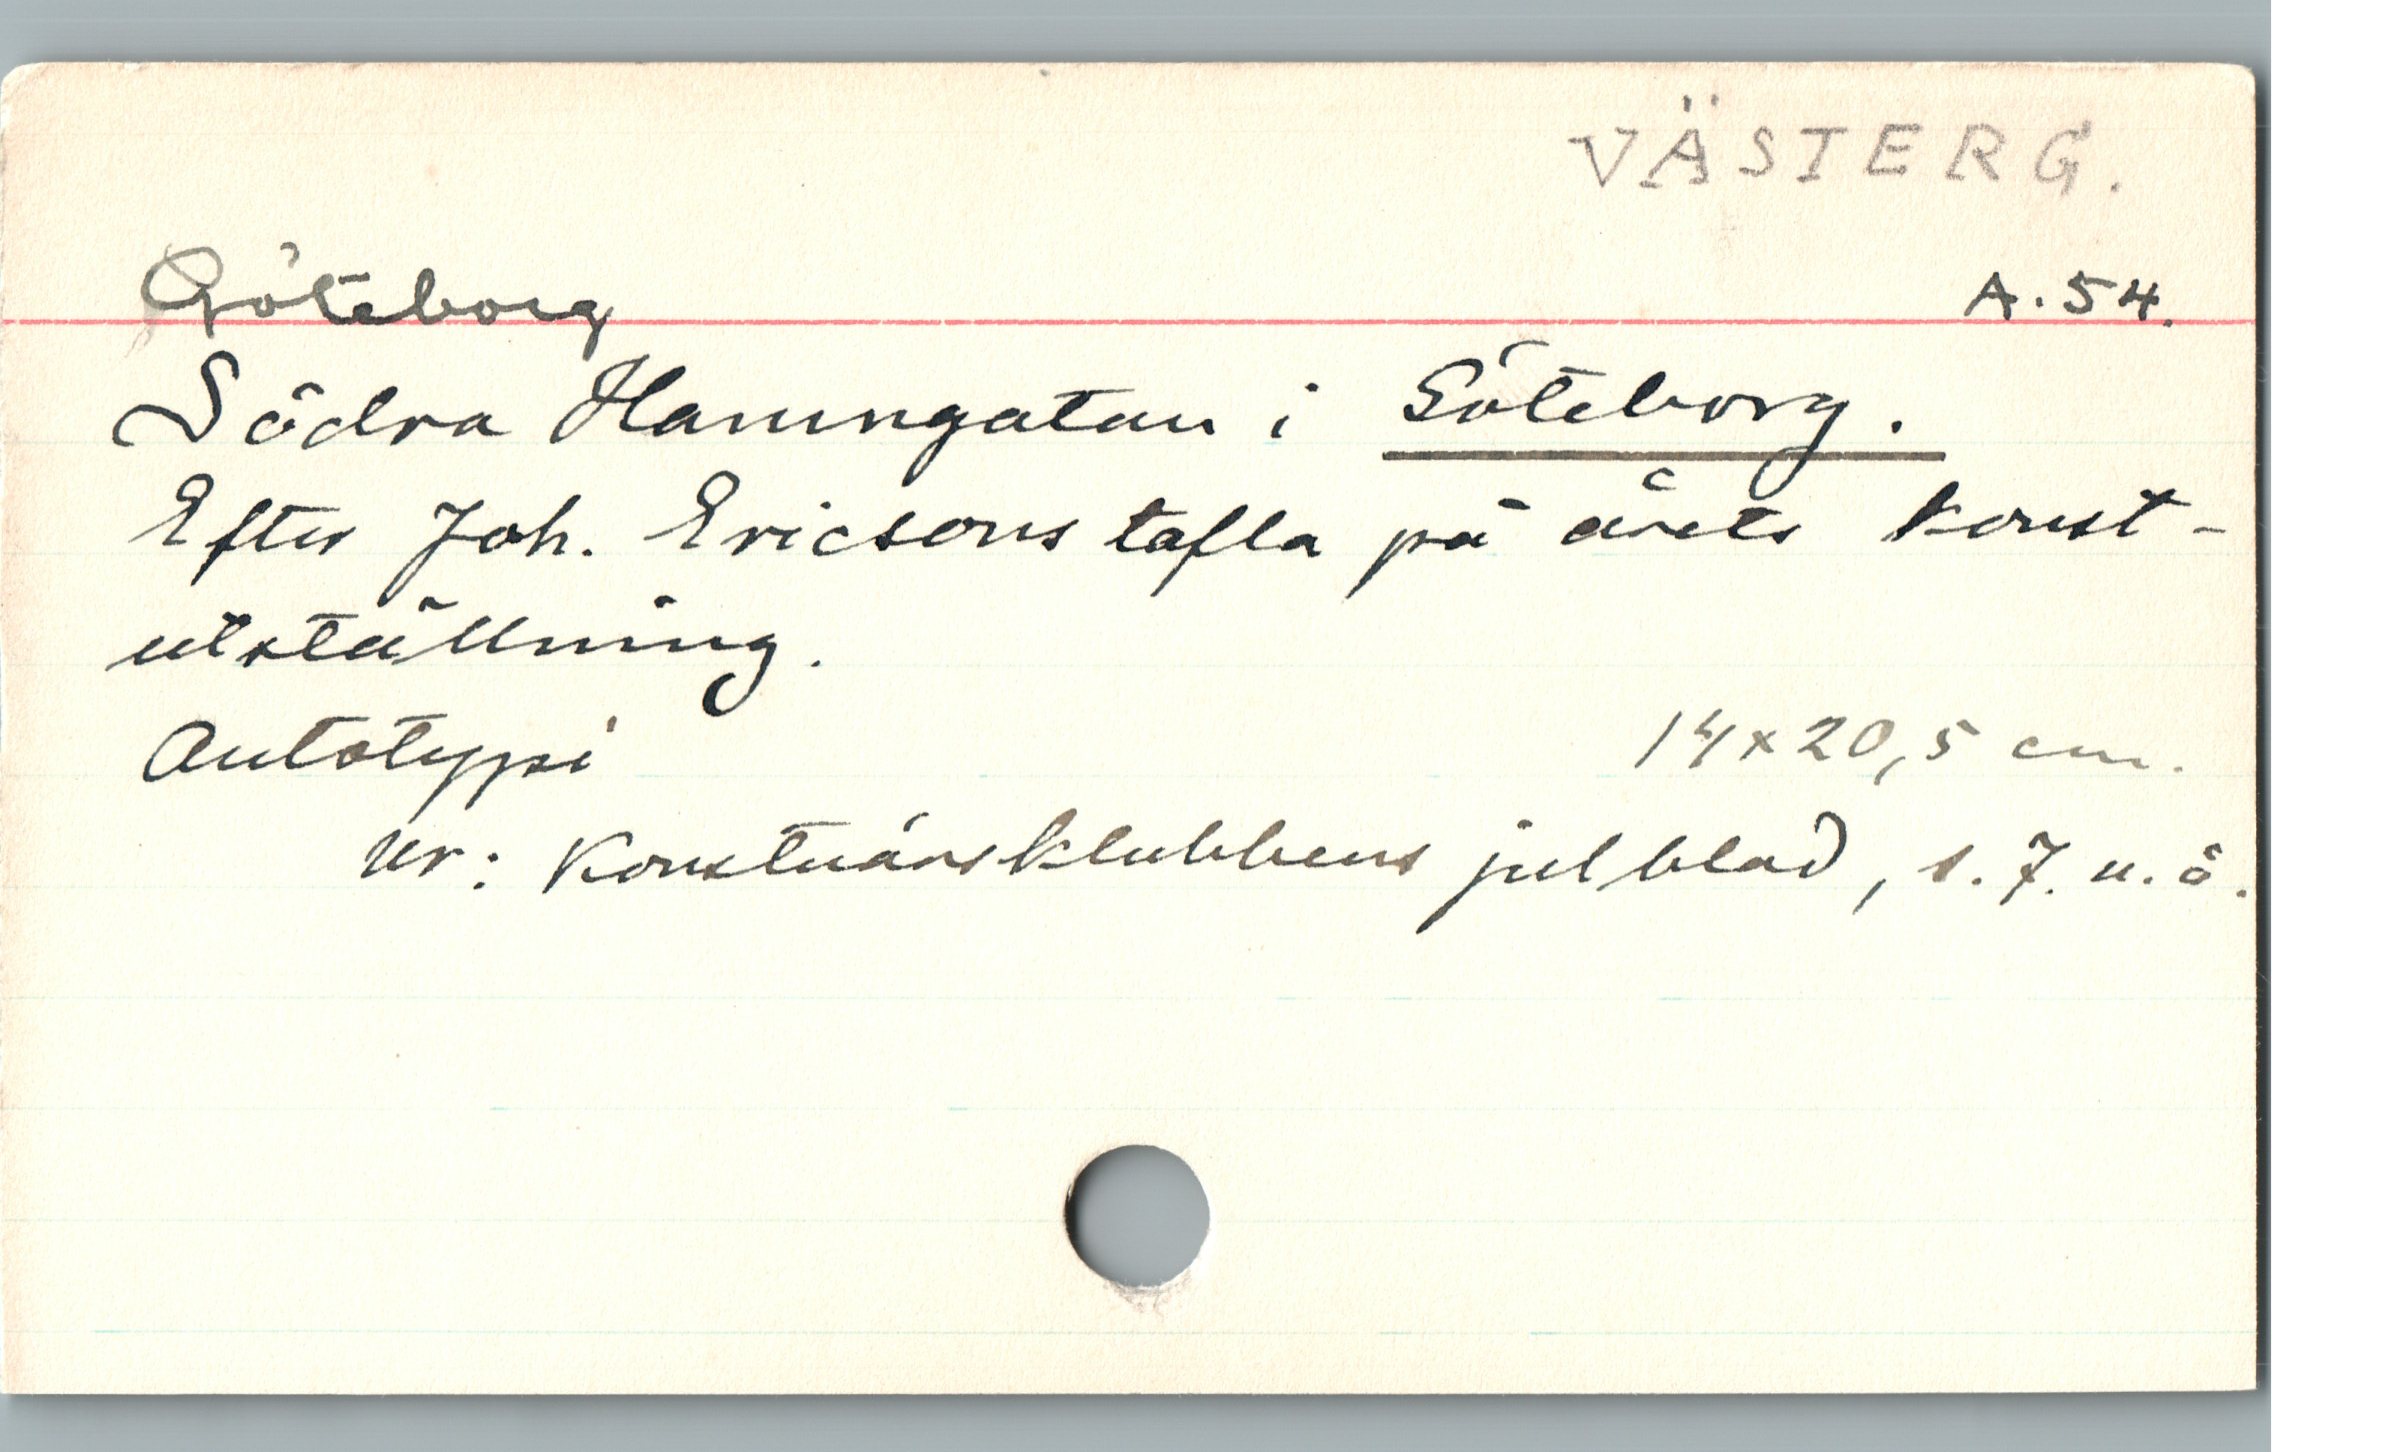 VÄSTERG.
Göteborg A.54.
Södra Hamngatan i Göteborg.
Efter Joh. Ericsons tafla på årets konst-
utställning.
Autotypi 14x20,5 cm.
Ur: Konstnärsklubbens julblad, s. 7. u. å.